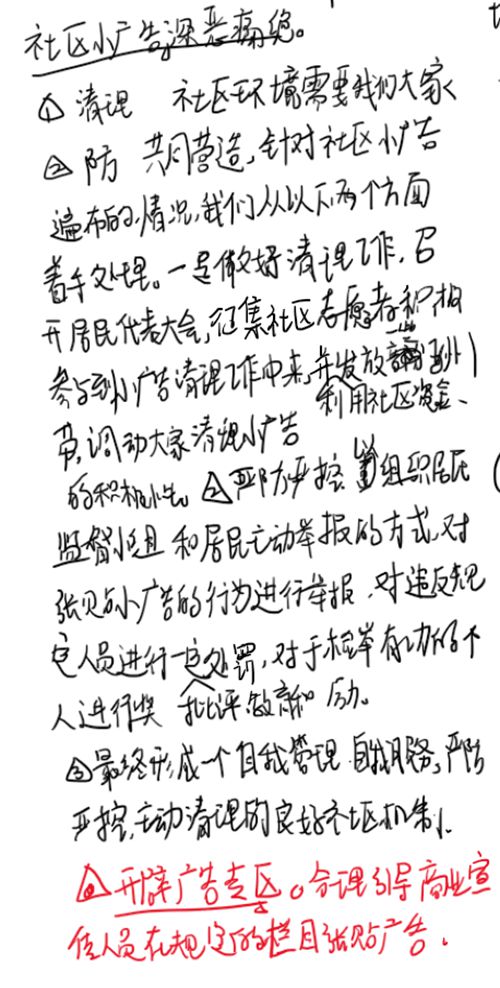 社区小广告深恶痛绝。
① 清理 社区环境需要我们大家
② 防 共同营造,针对社区小广告
遍布的情况,我们从以下两个方面
着手处理。一是做好清理工作,召
开居民代表大会,征集社区志愿者积极
参与到小广告清理工作中来,并发放
利用社区资金、
带,调动大家清理小广告
的积极性。②严防严控 以组织居民
监督小组和居民主动举报的方式,对
张贴小广告的行为进行举报,对违反规
定人员进行一定处罚,对于检举有功的个
人进行奖 批评教育和 励。
③最终形成一个自我管理 自我服务,严防
严控,主动清理的良好社区机制。
④开辟广告专区。合理引导商业宣
传人员在规定的栏目张贴广告.